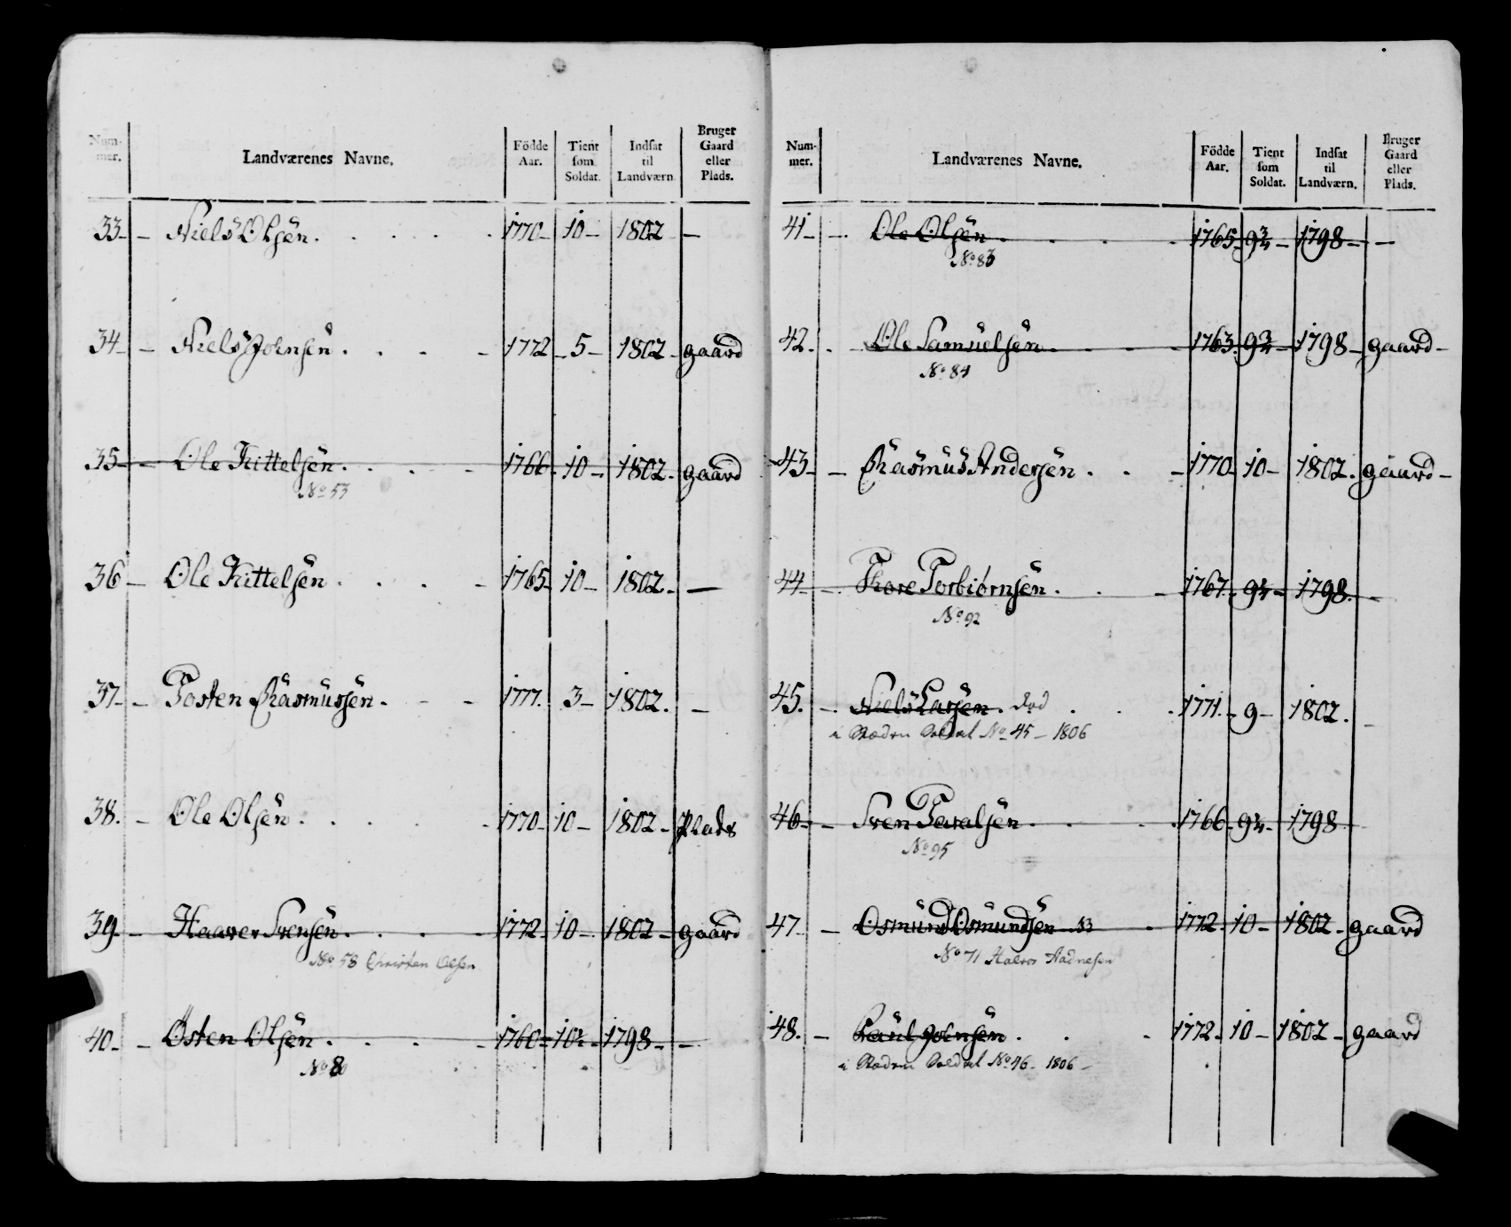 Num- mer. Landværenes Navne. Födde Aar. Tient som Soldat. Indsat til Landværn. Bruger Gaard eller Plads.
33 - Niels Olsen. 1770 - 10 - 1802 -
34 - Niels Johnsen. 1772 - 5 - 1802 - gaard
35 - Ole Kittelsen. 1766 - 10 - 1802 - gaard
No 53
36 - Ole Kittelsen. 1765 - 10 - 1802 - -
37 - Tosten Rasmussen. 1777. 3 - 1802. -
38. - Ole Olsen. 1770 - 10 - 1802 - Plads
39 - Haaver Svensen. 1772 - 10 - 1802 - gaard
No 58 Christen Olsen
40 - Östen Olsen. 1760 - 10 1/2 - 1798 - -
No 8
Num- mer. Landværenes Navne. Födde Aar. Tient som Soldat. Indsat til Landværn. Bruger Gaard eller Plads.
41 - Ole Olsen. 1765 - 9 3/4 - 1798 - -
No 83
42. - Ole Samuelsen. 1763. 9 3/4 - 1798 - gaard -
No 84
43 - Rasmus Andersen. 1770 10 - 1802. gaard -
44 - Thore Torbiörnsen. 1767. 9 1/2 - 1798. -
No 92
45. - Niels Larsen. död 1771 - 9 - 1802. -
No 45 - 1806
46 - Sven Tavalsen. 1766 - 9 1/2 - 1798
No 95
47 - Osmund Osmundsen 1772. 10 - 1802 - gaard
No 71 Halvor Aadnesen
48. - Paul Johnsen. 1772. 10 - 1802 - gaard
No 46 - 1806 -